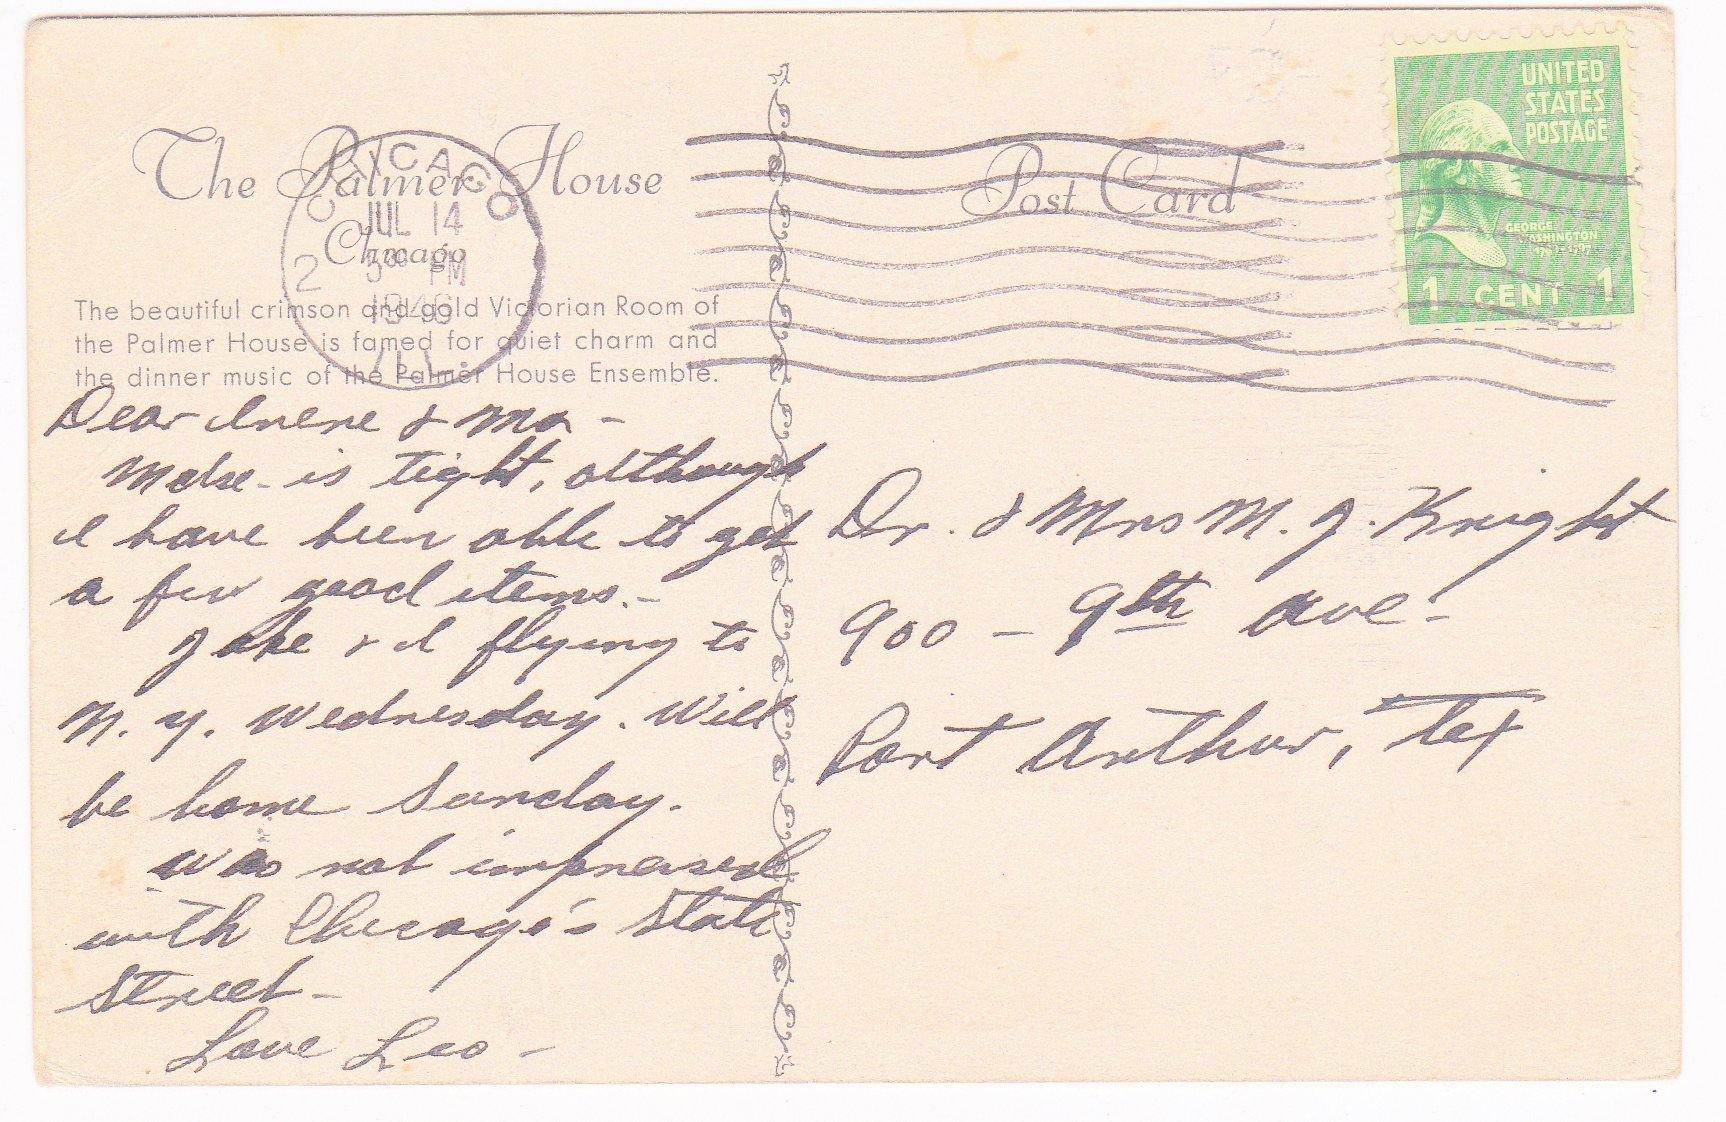 The Palmer House
Chicago
The beautiful crimson and gold Victorian Room of
the Palmer House is famed for quiet charm and
the dinner music of the Palmer House Ensemble.
CHICAGO
JUL 14
2 PM
1946
ILL.
Post Card
UNITED
STATES
POSTAGE
GEORGE
WASHINGTON
1 CENT 1
Dear Irene & Ma -
Mdse. is tight, although
I have been able to get
a few good items. -
Jake & I flying to
N. Y. Wednesday. Will
be home Sunday.
Was not impressed
with Chicago's State
Street -
Love Leo -
Dr. & Mrs M. J. Knight
900 - 9th Ave.
Port Arthur, Tex